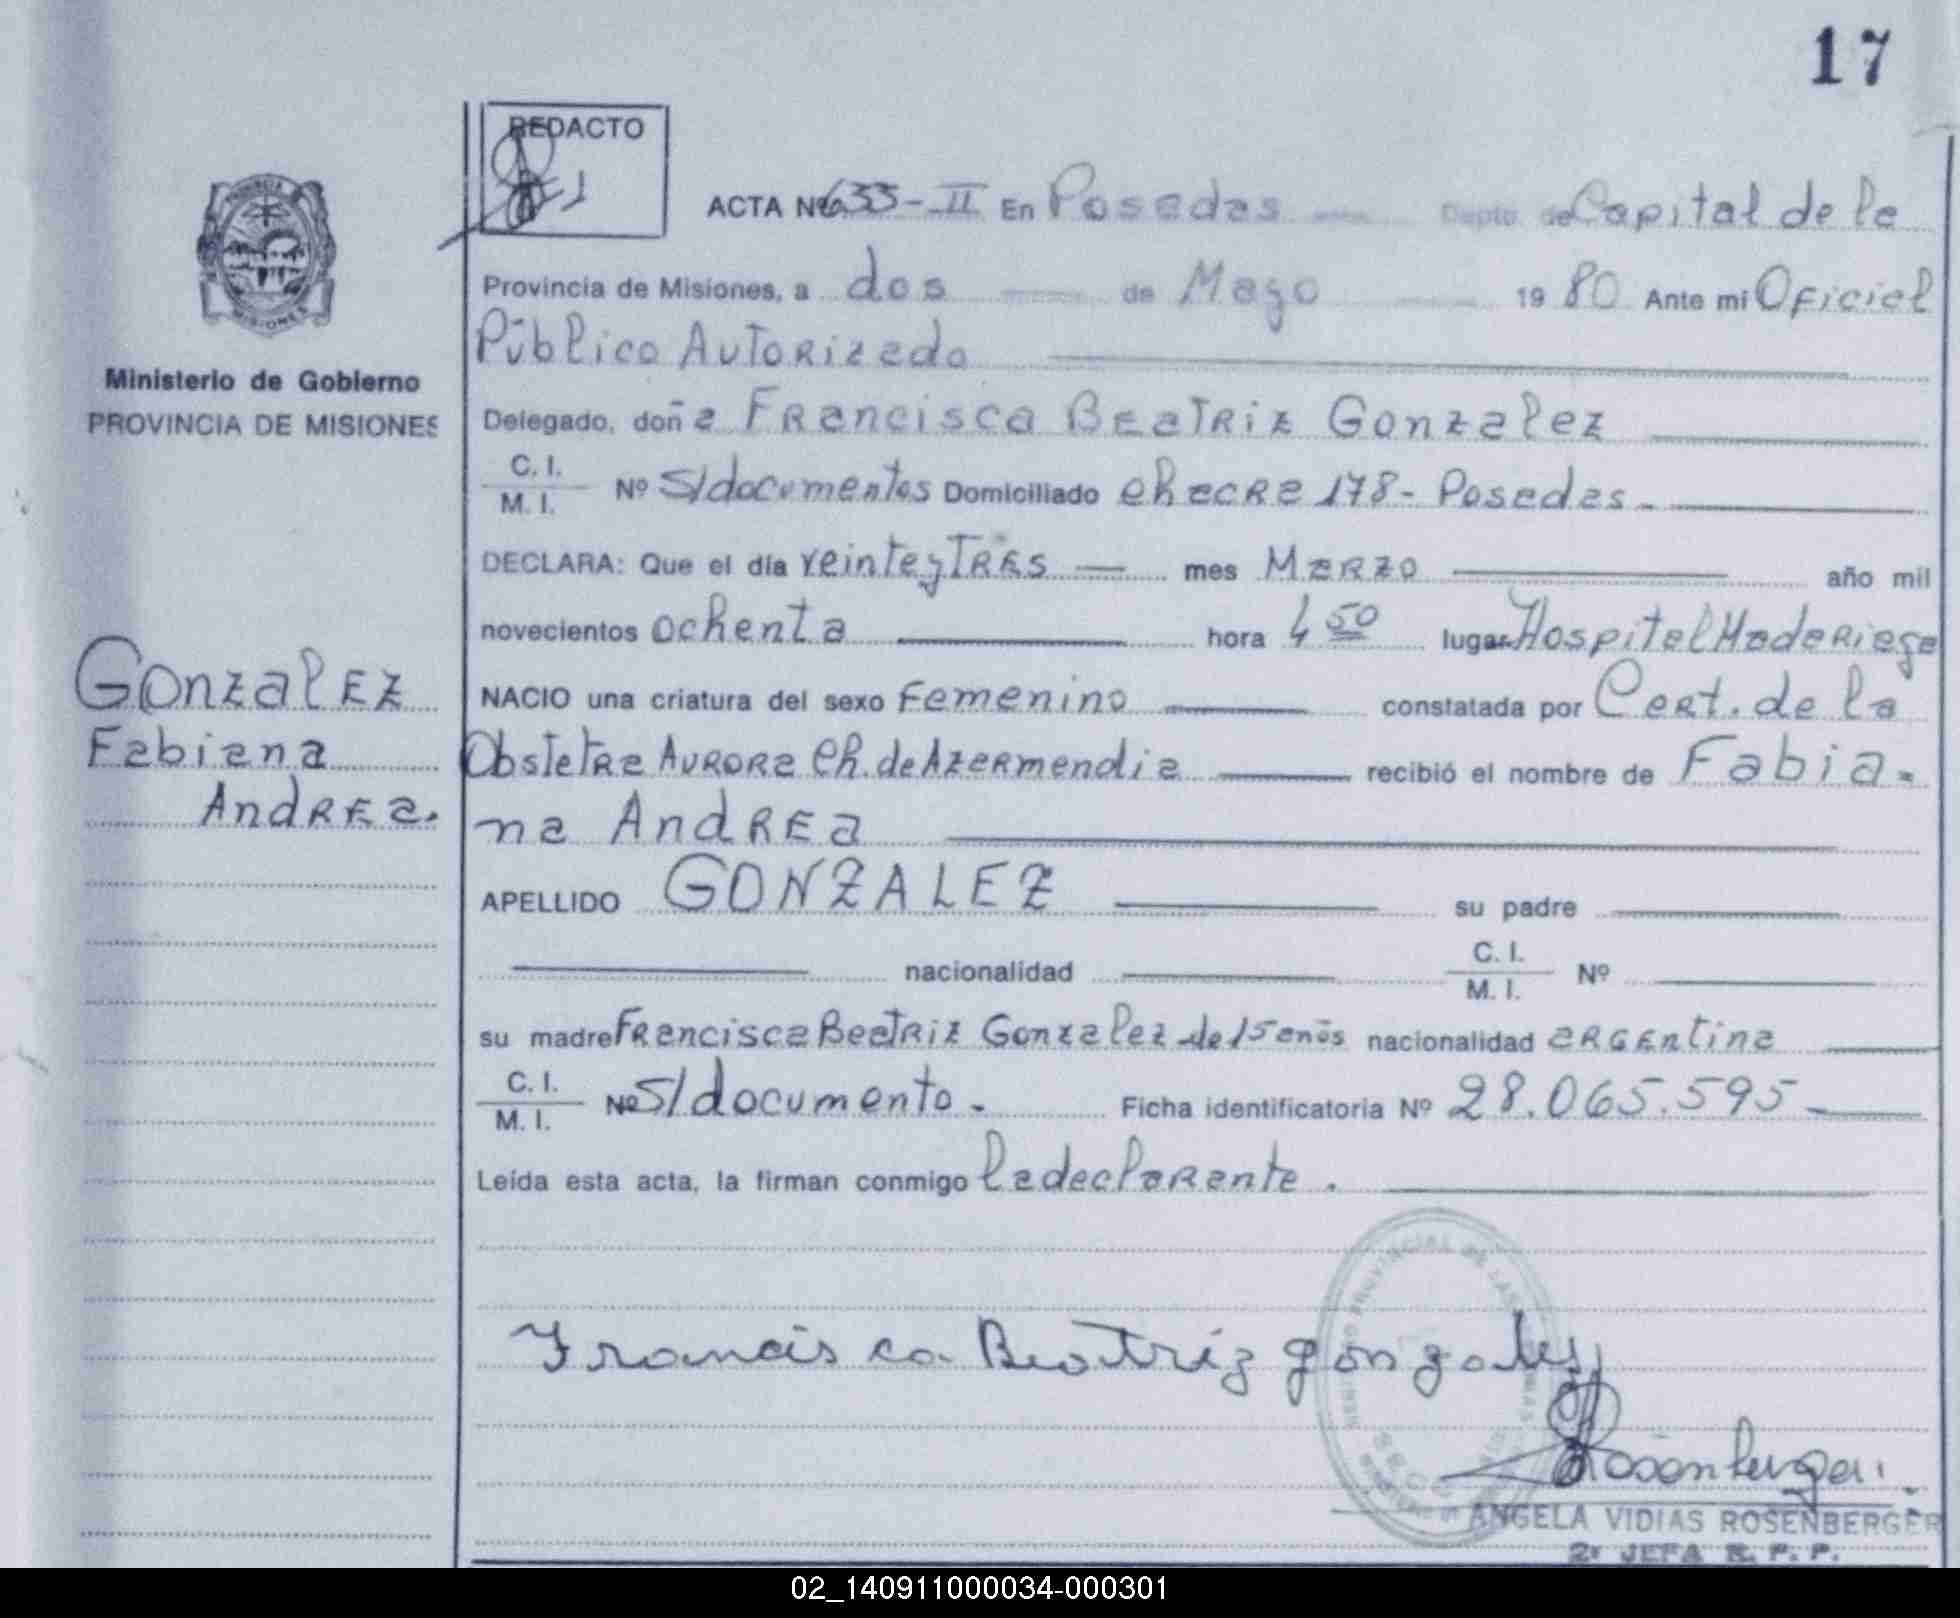 17
REDACTO
ACTA Nº 633-II En Posadas Depto. de Capital de la
Provincia de Misiones, a dos de Mayo 1980 Ante mi Oficial
Público Autorizado
Ministerio de Gobierno
PROVINCIA DE MISIONES
Delegado, doña Francisca Beatriz Gonzalez
C. I.
M. I. Nº S/documentos Domiciliado chacra 178- Posadas.
DECLARA: Que el día veinteytres mes Marzo año mil
novecientos ochenta hora 4 50 lugar Hospital Madariaga
Gonzalez
NACIO una criatura del sexo Femenino constatada por Cert. de la
Fabiana
Obstetra Aurora Ch. de Azarmendia recibió el nombre de Fabia-
Andrea.
na Andrea
APELLIDO GONZALEZ su padre
nacionalidad C. I.
M. I. Nº
su madre Francisca Beatriz Gonzalez de 15 años nacionalidad argentina
C. I.
M. I. Nº S/documento. Ficha identificatoria Nº 28.065.595
Leída esta acta, la firman conmigo la declarante.
Francisca Beatriz gonzalez
Rosenberger
ANGELA VIDIAS ROSENBERGER
2ª JEFA R. P. P.
PROVINCIA
MISIONES
02_140911000034-000301